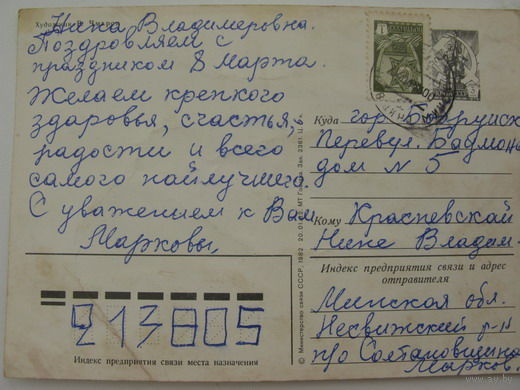 Художник
Нина Владимеровна.
Поздровляем с
праздником 8 Марта.
Желаем крепкого
здаровья, счастья,
радости и всего
самого найлучшего.
С уважением к Вам
Марковы
Куда гор. Бобруйск
Перевул.
дом N 5
Кому Красневской
Нине Владим
Индекс предприятия связи и адрес
отправителя
Минской обл.
Несвижский р-н
п/о Солтановщина
Марков
213805
Индекс предприятия связи места назначения
© Министерство связи СССР, 1982
www.ay.by